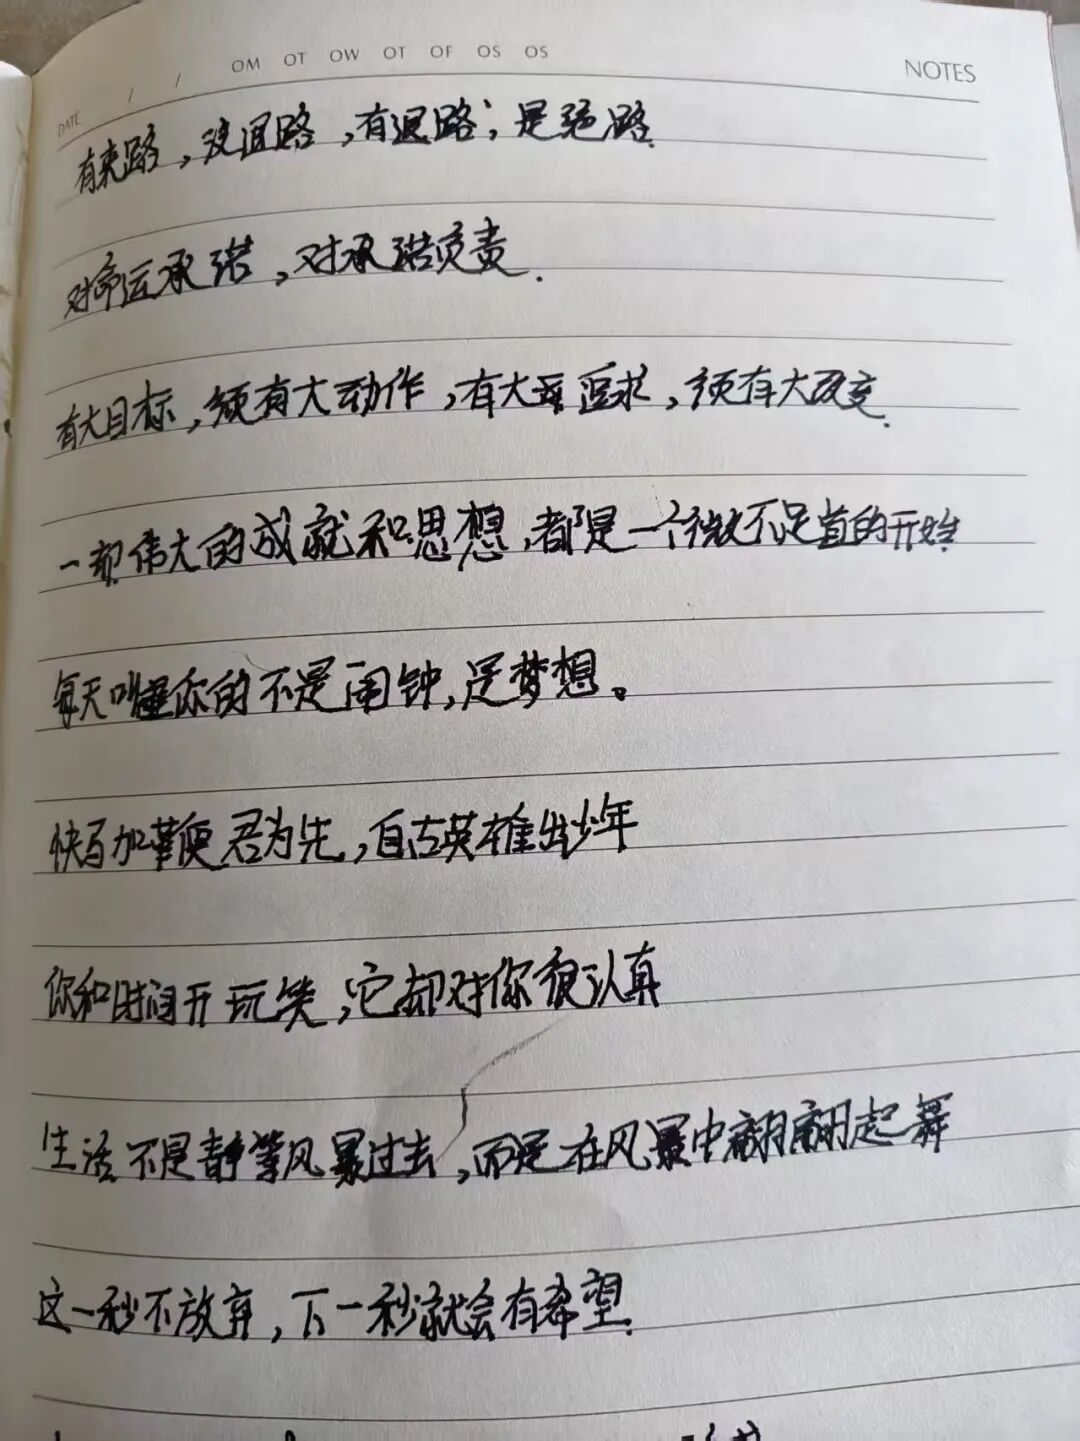 DATE / / OM OT OW OT OF OS OS NOTES
有来路，没退路，有退路；是绝路.
对命运承诺，对承诺负责.
有大目标，须有大动作，有大追求，须有大改变.
一切伟大的成就和思想，都是一个微不足道的开始
每天叫醒你的不是闹钟，是梦想。
快马加鞭便君为先，自古英雄出少年
你和时间开玩笑，它却对你很认真
生活不是静等风暴过去，而是在风暴中翩翩起舞
这一秒不放弃，下一秒就会有希望.